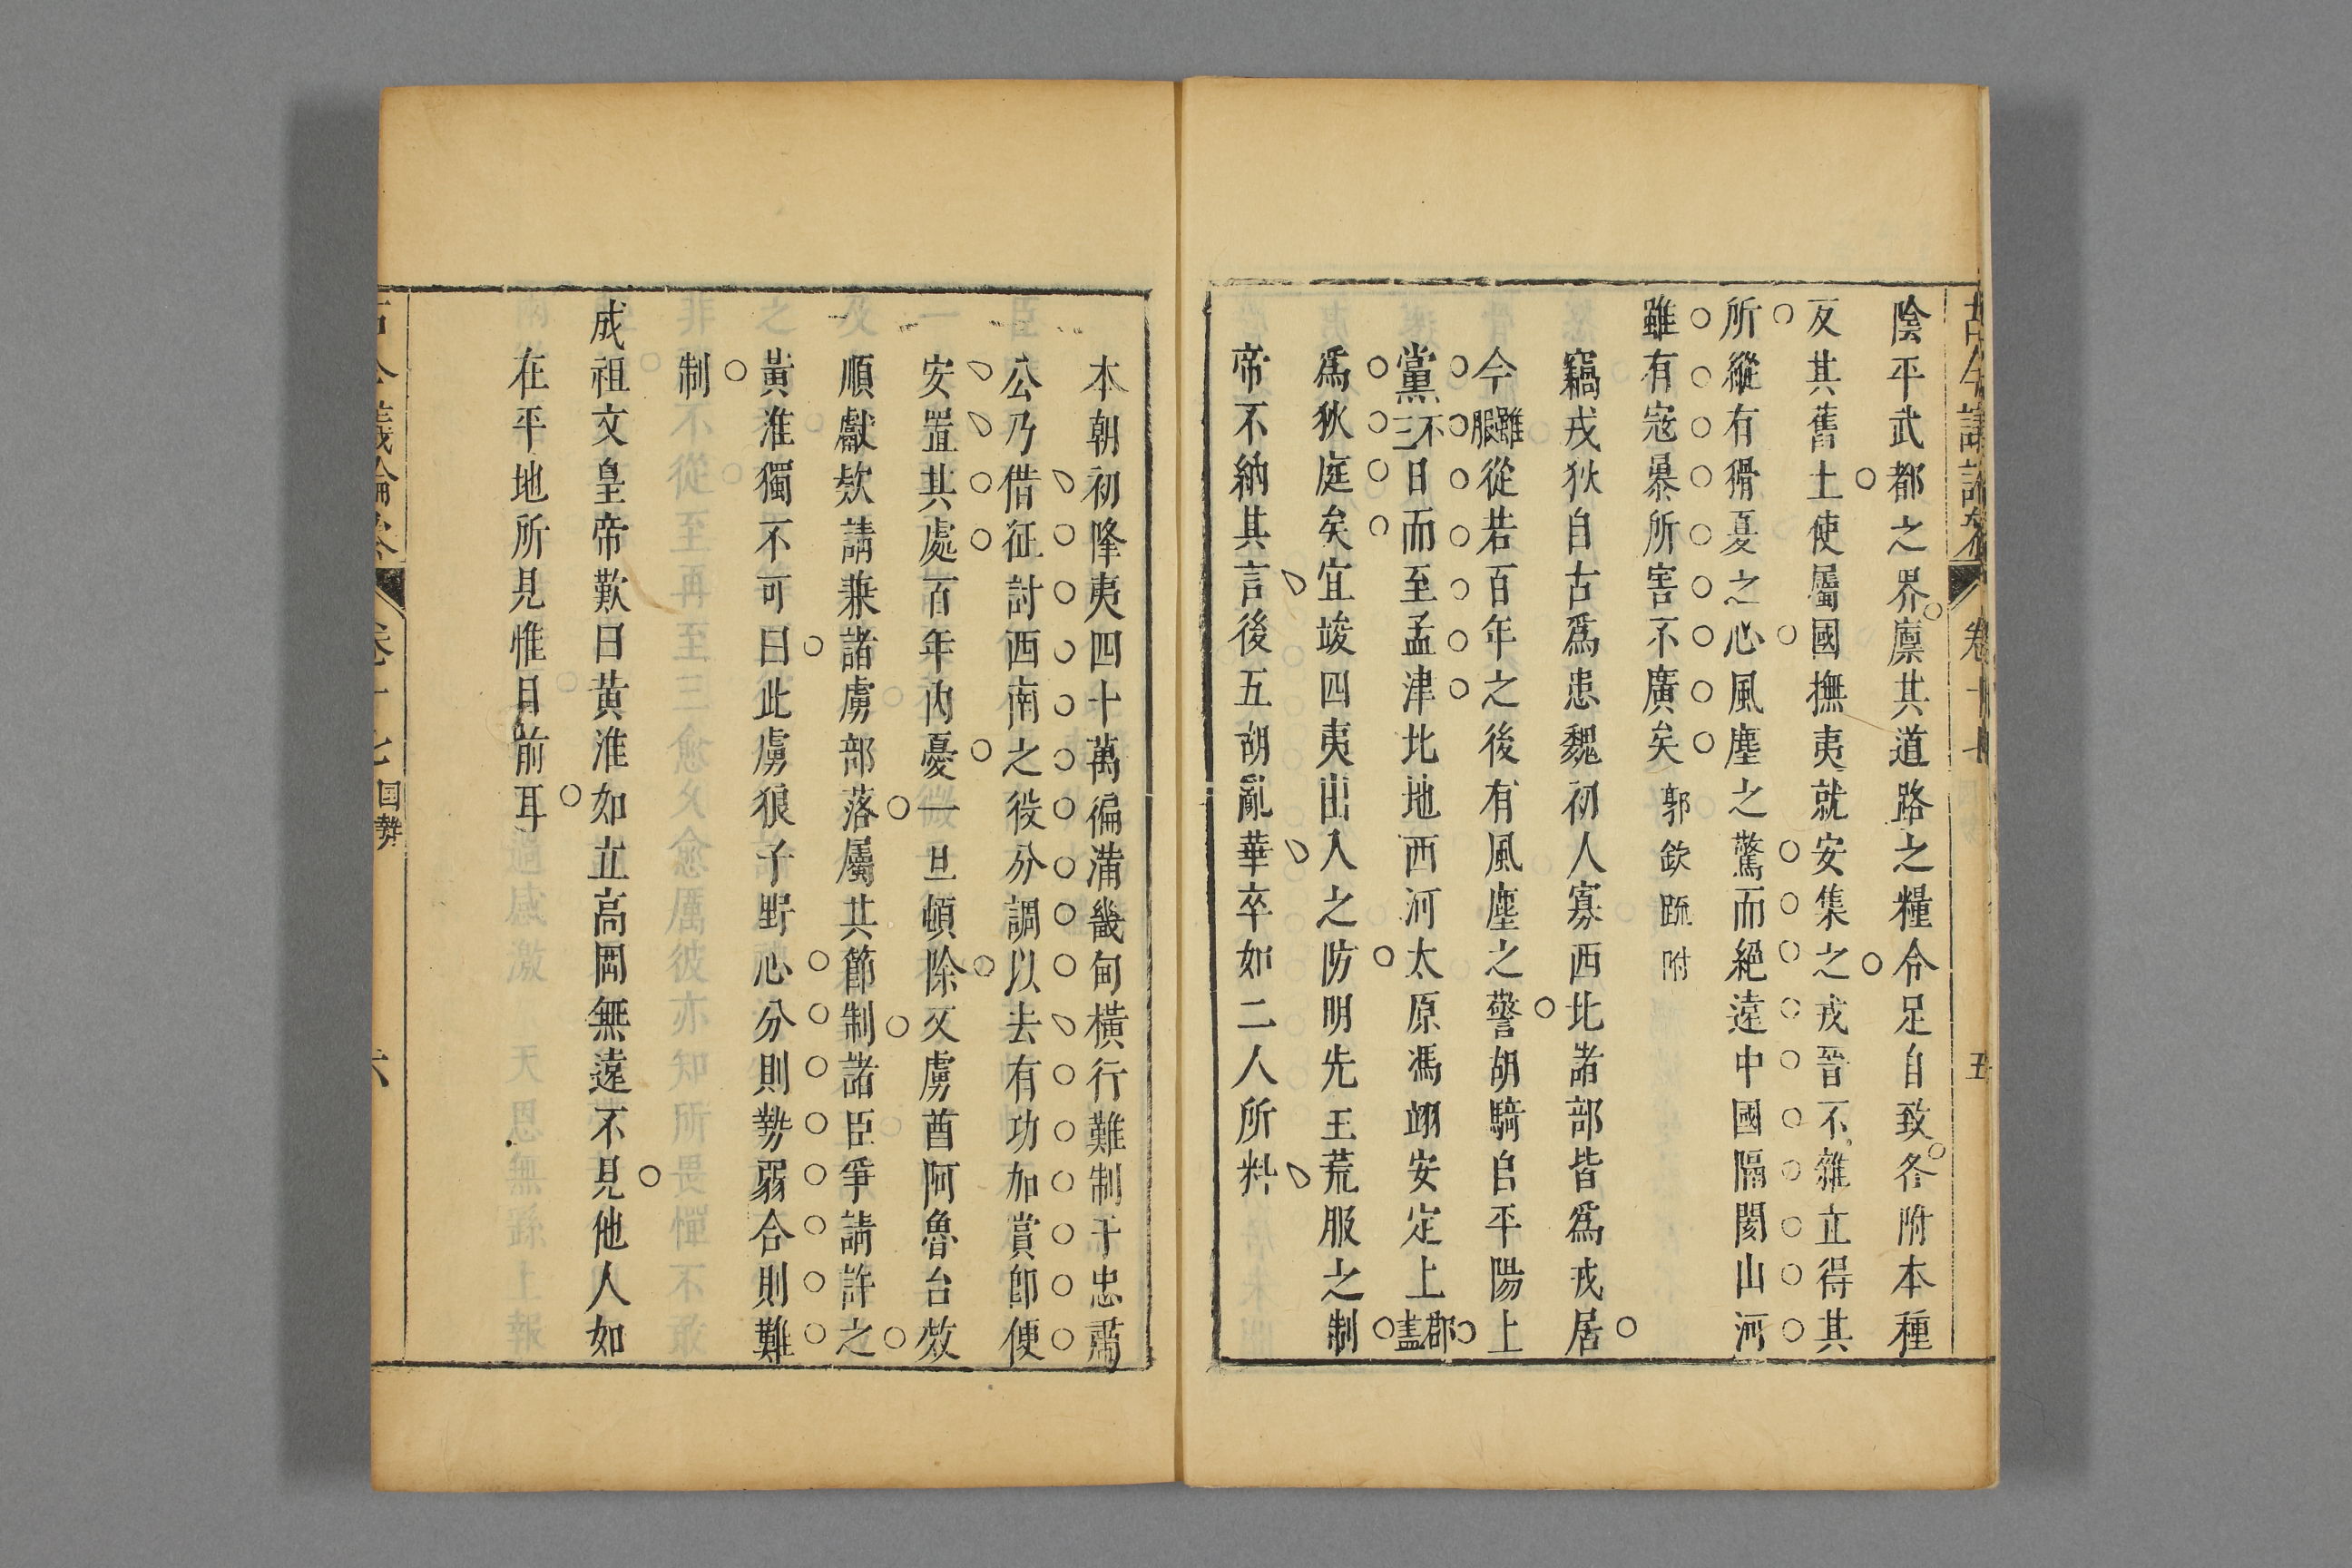 陰平武都之界廪其道路之糧令足自致各附本種
反其舊土使屬國撫夷就安集之戎晉不雜並得其
所縱有猾夏之心風塵之驚而絕遠中國隔閡山河
雖有寇暴所害不廣矣郭欽䟽附
竊戎狄自古爲患魏初人寡西北諸部皆爲戎居
今雖服從若百年之後有風塵之警胡騎自平陽上
黨不三日而至孟津北地西河太原馮翊安定上郡盡
爲狄庭矣宜峻四夷出入之防明先王荒服之制
帝不納其言後五胡亂華卒如二人所料
本朝初降夷四十萬徧蒲畿甸橫行難制于忠肅
公乃借征討西南之役分調以去有功加賞卽便
安置其處百年內憂一旦頓除又虜酋阿魯台效
順獻欵請兼諸虜部落屬其節制諸臣爭請許之
黃淮獨不可曰此虜狼子野心分則勢弱合則難
制
成祖文皇帝歎曰黃淮如立高岡無遠不見他人如
在平地所見惟目前耳
古今議論叅
卷十七
国勢
六